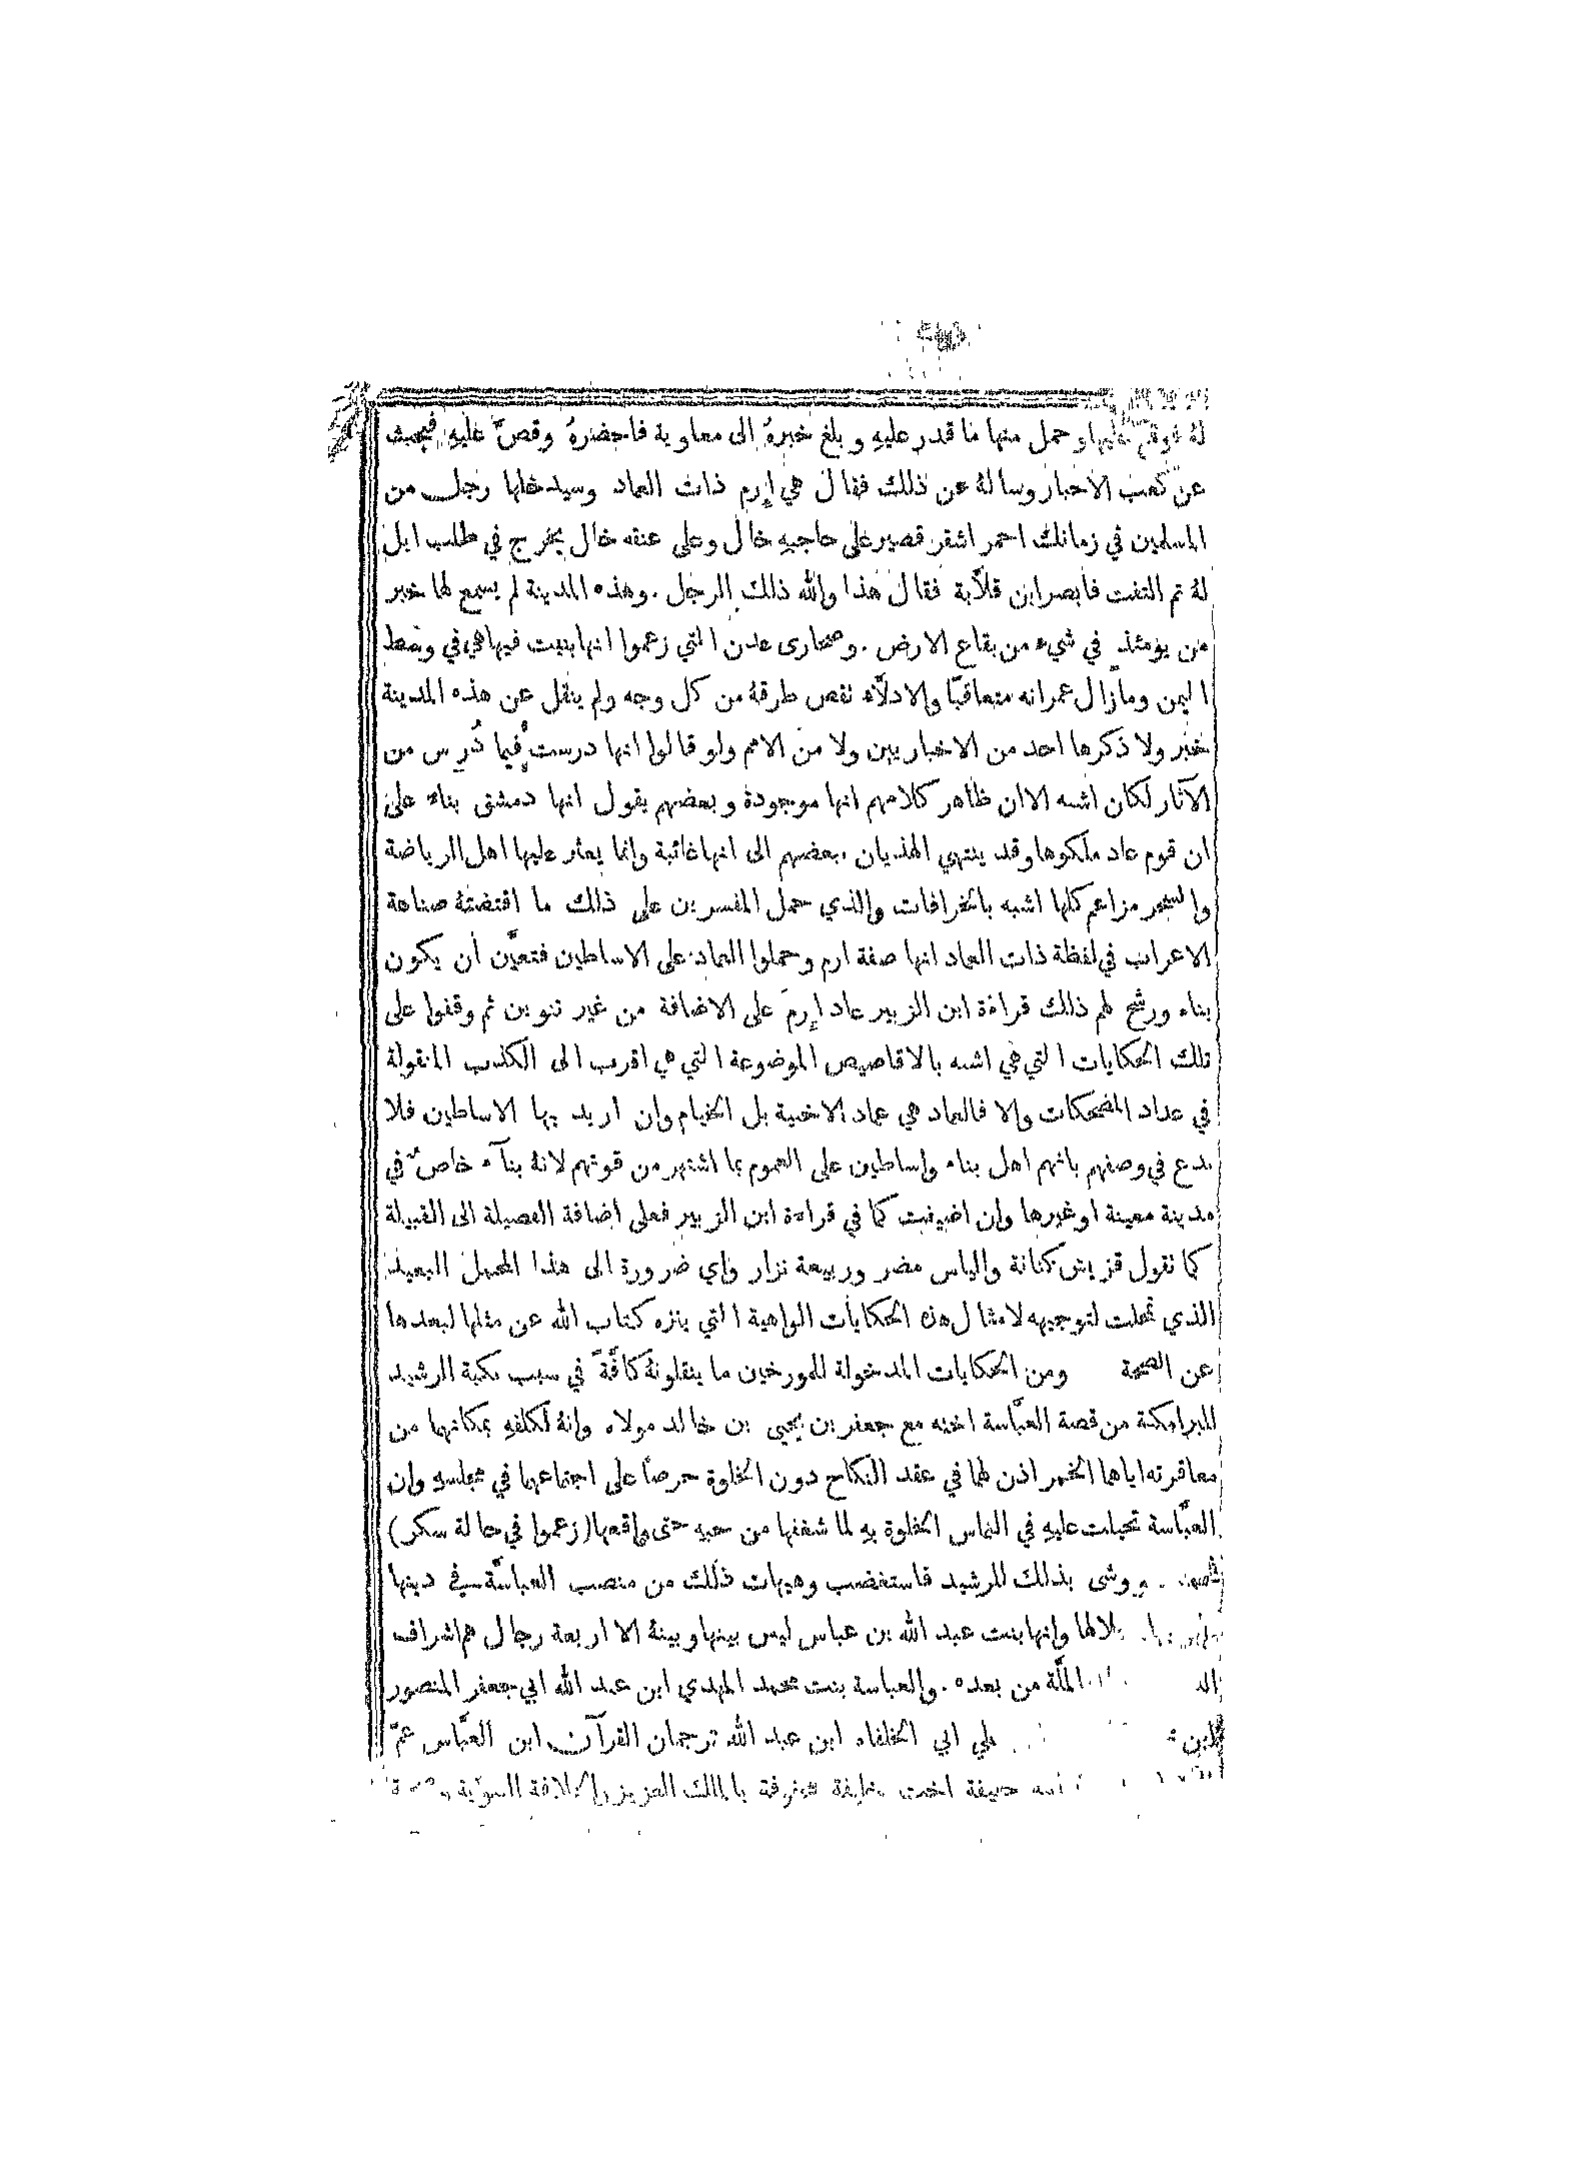 لهُ فوقع عليها وحمل منها ما قدر عليهِ وبلغ خبرهُ الى معاوية فاحضرهُ وقصَّ عليهِ فبحث
عن كعب الاحبار وسالهُ عن ذلك فقال هي إِرم ذات العماد وسيدخلها رجل من
المسلمين في زمانك احمر اشقر قصير على حاجبهِ خال وعلى عنقه خال يخرج في طلب ابل
لهُ ثم التفت فابصر ابن قلاَّبة فقال هذا والله ذلك الرجل . وهذه المدينة لم يسمع لها خبر
من يومئذ في شيء من بقاع الارض . وصحارى عدن التي زعموا انها بنيت فيها هي في وسط
اليمن وما زال عمرانه متعاقبًا والادلَّاء تقص طرقهُ من كل وجه ولم ينقل عن هذه المدينة
خبر ولا ذكرها احد من الاخباريين ولا من الامم ولو قالوا انها درست فيما دُرِس من
الآثار لكان اشبه الا ان ظاهر كلامهم انها موجودة وبعضهم يقول انها دمشق بناء على
ان قوم عاد ملكوها وقد ينتهي الهذيان ببعضهم الى انها غائبة وانما يعثر عليها اهل الرياضة
والسحر مزاعم كلها اشبه بالخرافات والذي حمل المفسرين على ذلك ما اقتضتهُ صناعة
الاعراب في لفظة ذات العماد انها صفة ارم وحملوا العماد على الاساطين فتعيَّن أن يكون
بناء ورشح لهم ذلك قراءة ابن الزبير عاد إِرمَ على الاضافة من غير تنوين ثم وقفوا على
تلك الحكايات التي هي اشبه بالاقاصيص الموضوعة التي هي اقرب الى الكذب المنقولة
في عداد المضحكات والا فالعماد هي عماد الاخبية بل الخيام وان اريد بها الاساطين فلا
بدع في وصفهم بانهم اهل بناء واساطين على العموم بما اشتهر من قوتهم لانهُ بنآء خاصٌ في
مدينة معينة او غيرها وان اضيفت كما في قراءة ابن الزبير فعلى اضافة الفصيلة الى القبيلة
كما تقول قريش كنانة والياس مضر وربيعة نزار واي ضرورة الى هذا المحمل البعيد
الذي تمحلت لتوجيهه لامثال هذه الحكايات الواهية التي ينزه كتاب الله عن مثلها لبعدها
عن الصحة ومن الحكايات المدخولة للمورخين ما ينقلونهُ كافَّةً في سبب نكبة الرشيد
للبرامكة من قصة العبَّاسة اخته مع جعفر بن يحيى بن خالد مولاه وانهُ لكلفهِ بمكانهما من
معاقرته اياهما الخمر اذن لهما في عقد النكاح دون الخلوة حرصًا على اجتماعهما في مجلسهِ وان
العبَّاسة تحيلت عليهِ في التماس الخلوة بهِ لما شغفها من حبهِ حتى واقعها (زعموا في حالة سكر)
ووشى بذلك للرشيد فاستغضب وهيهات ذلك من منصب العباسَّة في دينها
وابويها وجلالها وانها بنت عبد الله بن عباس ليس بينها وبينهُ الا اربعة رجال هم اشراف
الملَّة من بعده . والعباسة بنت محمد المهدي ابن عبد الله ابي جعفر المنصور
ابن علي ابي الخلفاء ابن عبد الله ترجمان القرآن ابن العبَّاس عمّ
خليفة اخت خليفة محفوفة بالملك العزيز والخلافة النبوّية